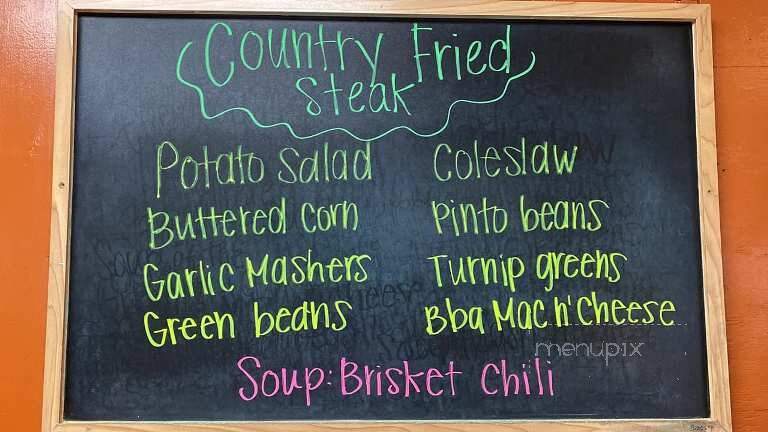 Country Fried
Steak
Potato Salad
Coleslaw
Buttered corn
Pinto beans
Garlic Mashers
Turnip greens
Green beans
Bba Mac n' Cheese
menupix
Soup: Brisket Chili